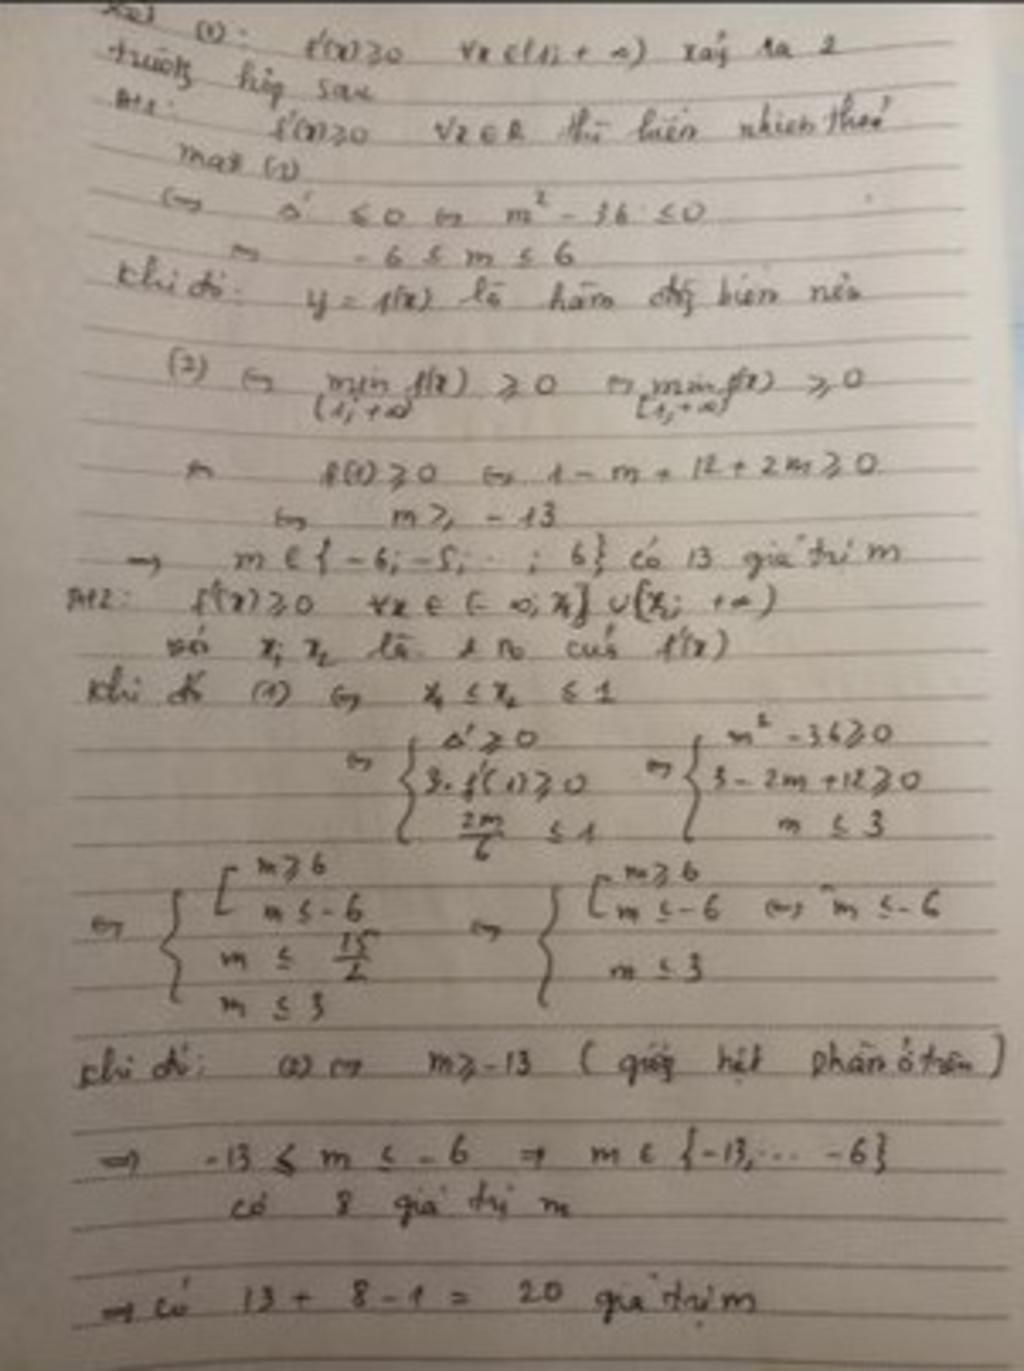 (1): f'(x) ≥ 0 ∀x ∈ (1; +∞) xảy ra 2
trường hợp sau
TH1: f'(x) ≥ 0 ∀x ∈ R thì hiển nhiên thoả
mãn (1)
⇔ Δ' ≤ 0 ⇔ m² - 36 ≤ 0
⇔ -6 ≤ m ≤ 6
Khi đó: y = f(x) là hàm đồng biến nên
(2) ⇔ min f(x) ≥ 0 ⇔ min f(x) ≥ 0
(1; +∞) [1; +∞)
⇔ f(1) ≥ 0 ⇔ 1 - m + 12 + 2m ≥ 0
⇔ m ≥ -13
→ m ∈ {-6; -5; ... ; 6} có 13 giá trị m
TH2: f'(x) ≥ 0 ∀x ∈ (-∞; x₁] ∪ [x₂; +∞)
với x₁ x₂ là 2 no của f'(x)
Khi đó (1) ⇔ x₁ ≤ x₂ ≤ 1
⇔ { Δ' ≥ 0 ⇔ { m² - 36 ≥ 0
3.f'(1) ≥ 0 3 - 2m + 12 ≥ 0
2m/6 ≤ 1 m ≤ 3
⇔ { [ m ≥ 6 ⇔ { [ m ≥ 6
m ≤ -6 m ≤ -6 ⇔ m ≤ -6
m ≤ 15/2
m ≤ 3 m ≤ 3
Khi đó: (2) ⇔ m ≥ -13 (giống hệt phần ở trên)
⇒ -13 ≤ m ≤ -6 ⇒ m ∈ {-13; ... -6}
có 8 giá trị m
⇒ có 13 + 8 - 1 = 20 giá trị m